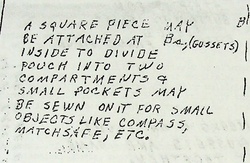 A SQUARE PIECE MAY
BE ATTACHED AT B&C, (GUSSETS)
INSIDE TO DIVIDE
POUCH INTO TWO
COMPARTMENTS &
SMALL POCKETS MAY
BE SEWN ON IT FOR SMALL
OBJECTS LIKE COMPASS,
MATCHSAFE, ETC.